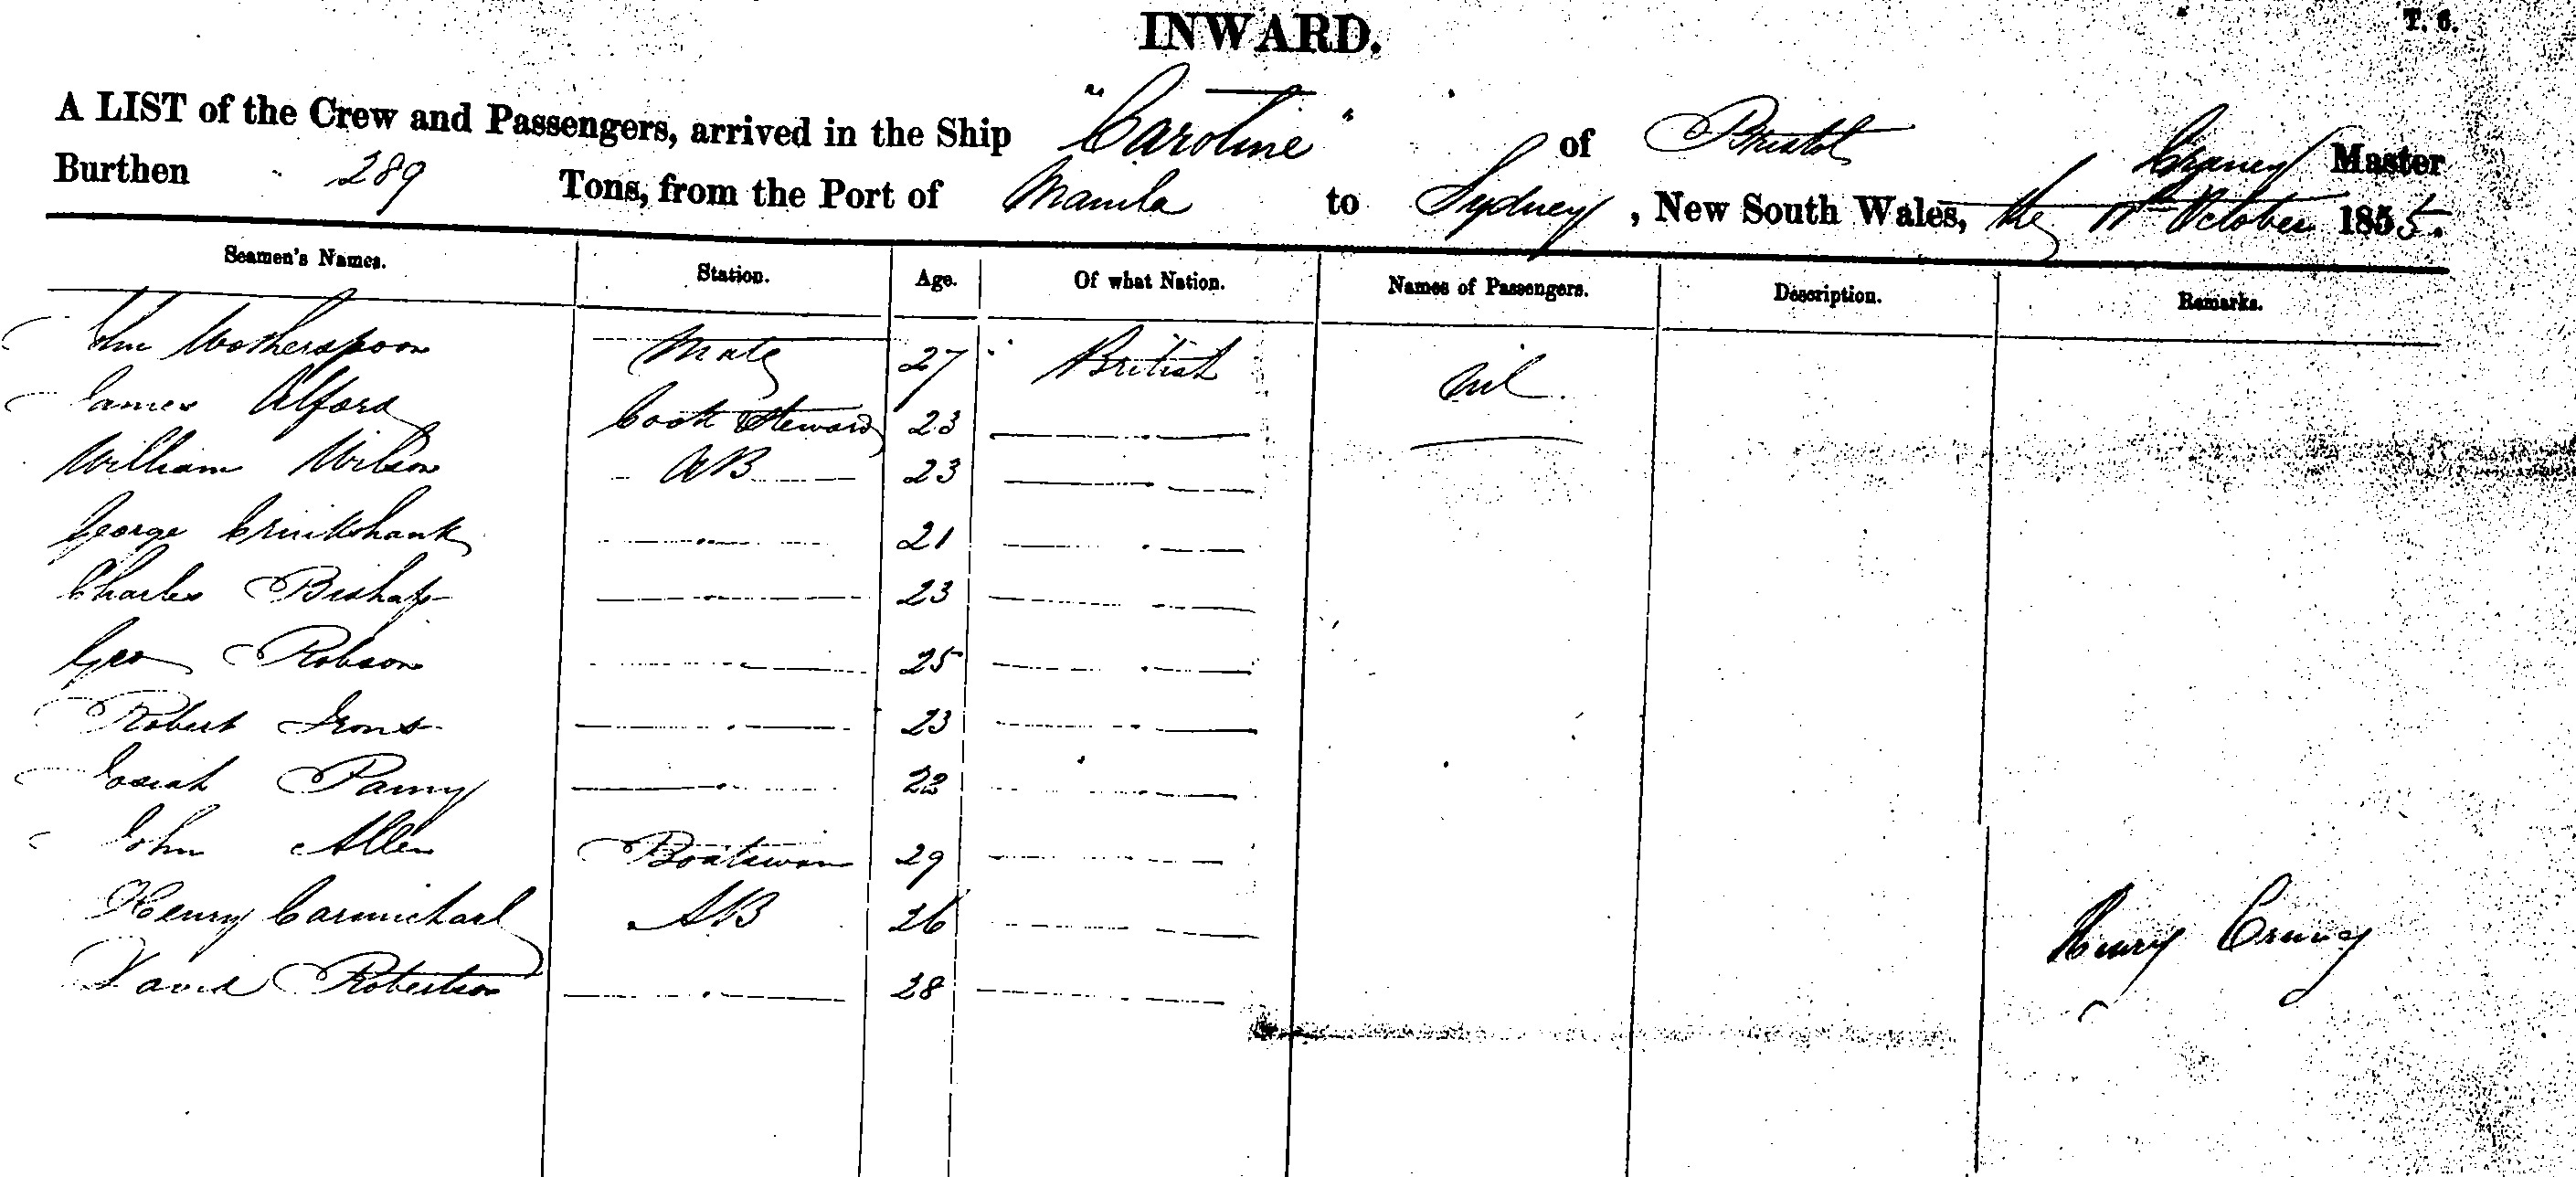 T. 6.
INWARD.
A LIST of the Crew and Passengers, arrived in the Ship "Caroline" of Bristol Master
Burthen 289 Tons, from the Port of Manila to Sydney, New South Wales, the 11th October 1855.
Seamen's Names. Station. Age. Of what Nation. Names of Passengers. Description. Remarks.
John Wotherspoon Mate 27 British Nil
James Alford Cook Steward 23
William Wilson AB 23
George Cruikshank 21
Charles Bishop 23
Geo Robson 25
Robert Irons 23
Josiah 22
John Allen Boatswan 29
Henry Carmichael AB 26
Henry
David Robertson 28